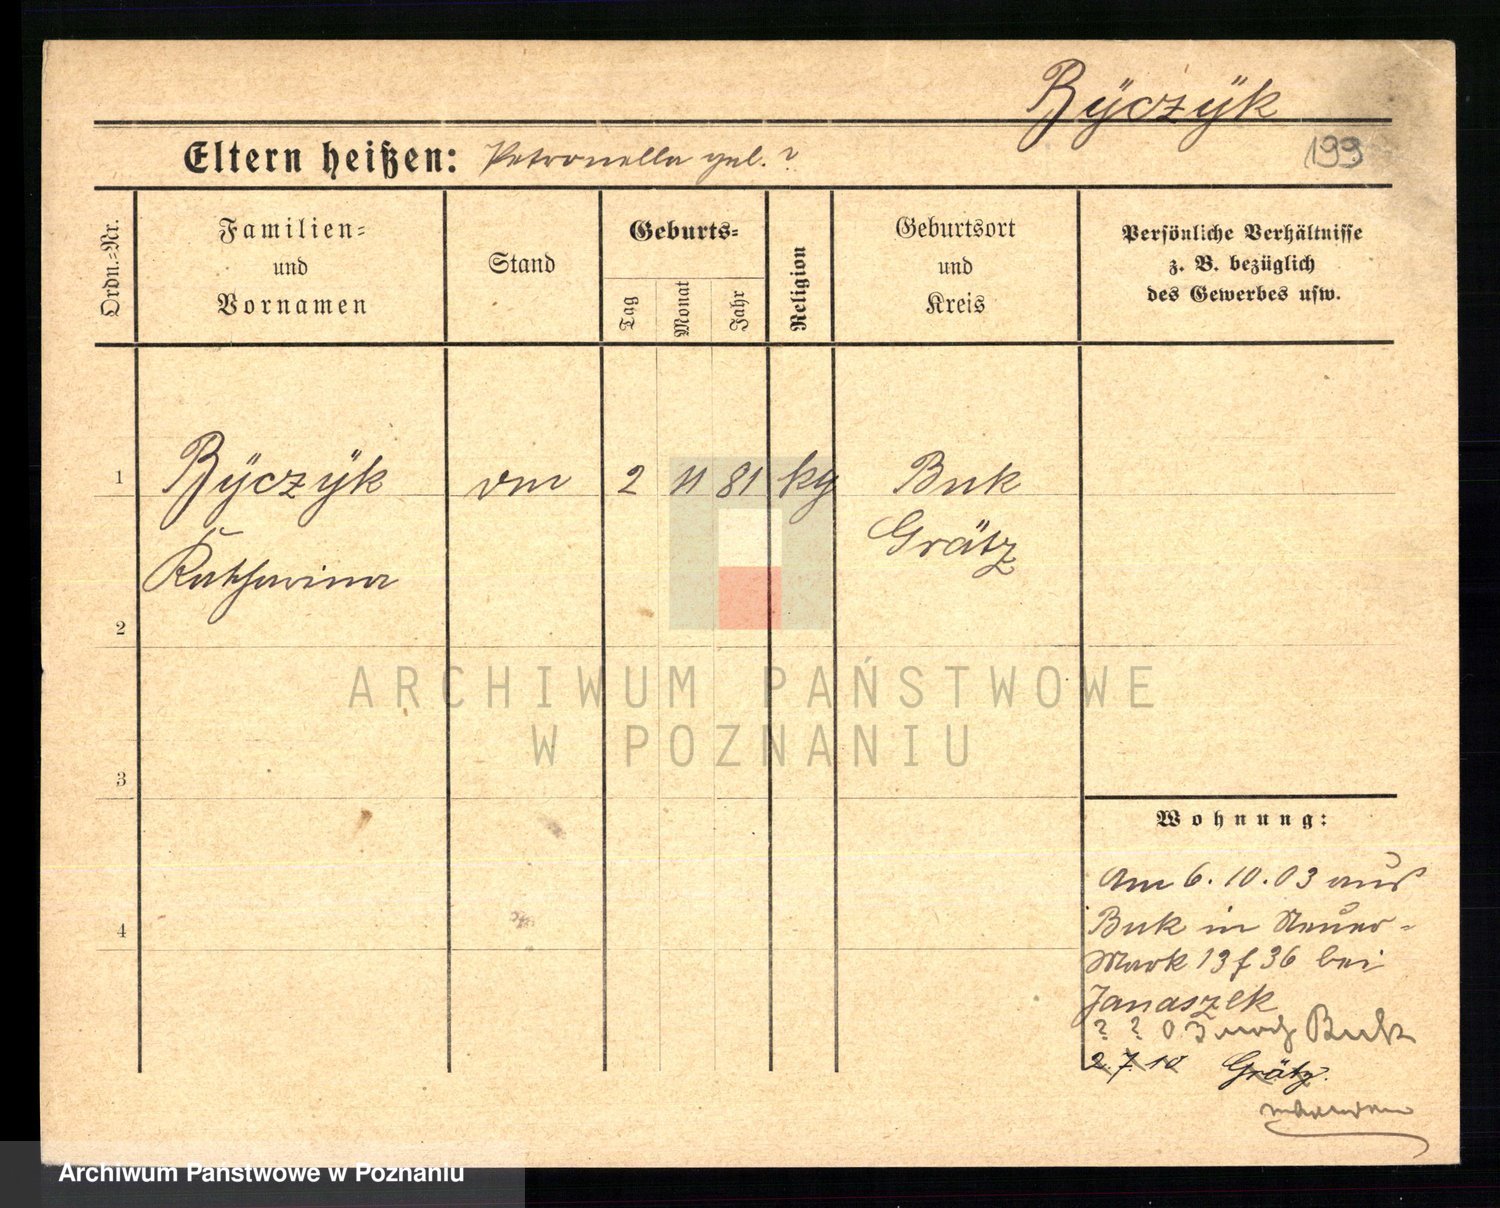 Byczyk
Eltern heißen: Petronella geb. ?
199
Ordn.-Nr.
Familien-
und
Vornamen
Stand
Geburts-
Tag
Monat
Jahr
Religion
Geburtsort
und
Kreis
Persönliche Verhältnisse
z. B. bezüglich
des Gewerbes usw.
1 Byczyk 2 11 81 kg Buk
Grätz
Katharina
2
ARCHIWUM PAŃSTWOWE
W POZNANIU
3
Wohnung:
4
Am 6.10.03 aus
Buk in Steuer-
Mark 13 f 36 bei
Janaszek
? ? 03 nach Buk
2.7.10 Grätz.
Archiwum Państwowe w Poznaniu